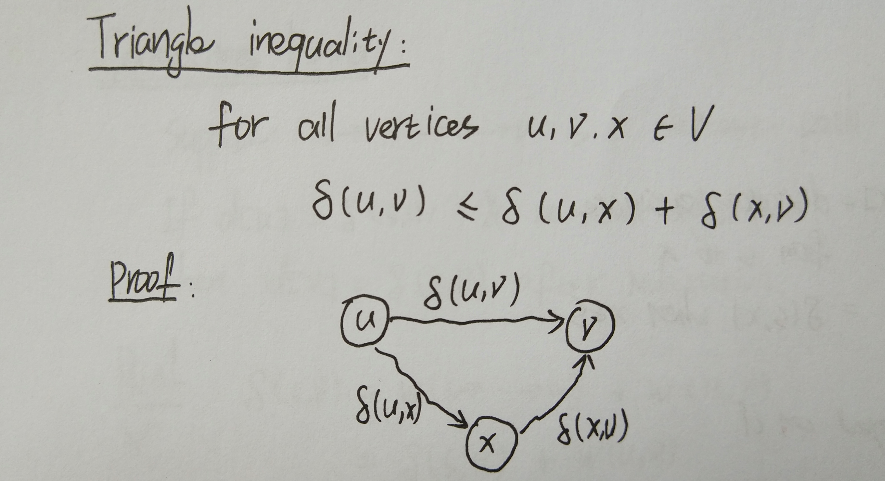 Triangle inequality:
for all vertices u, v. x ∈ V
δ(u,v) ≤ δ(u,x) + δ(x,v)
Proof:
δ(u,v)
u
v
δ(u,x)
δ(x,v)
x